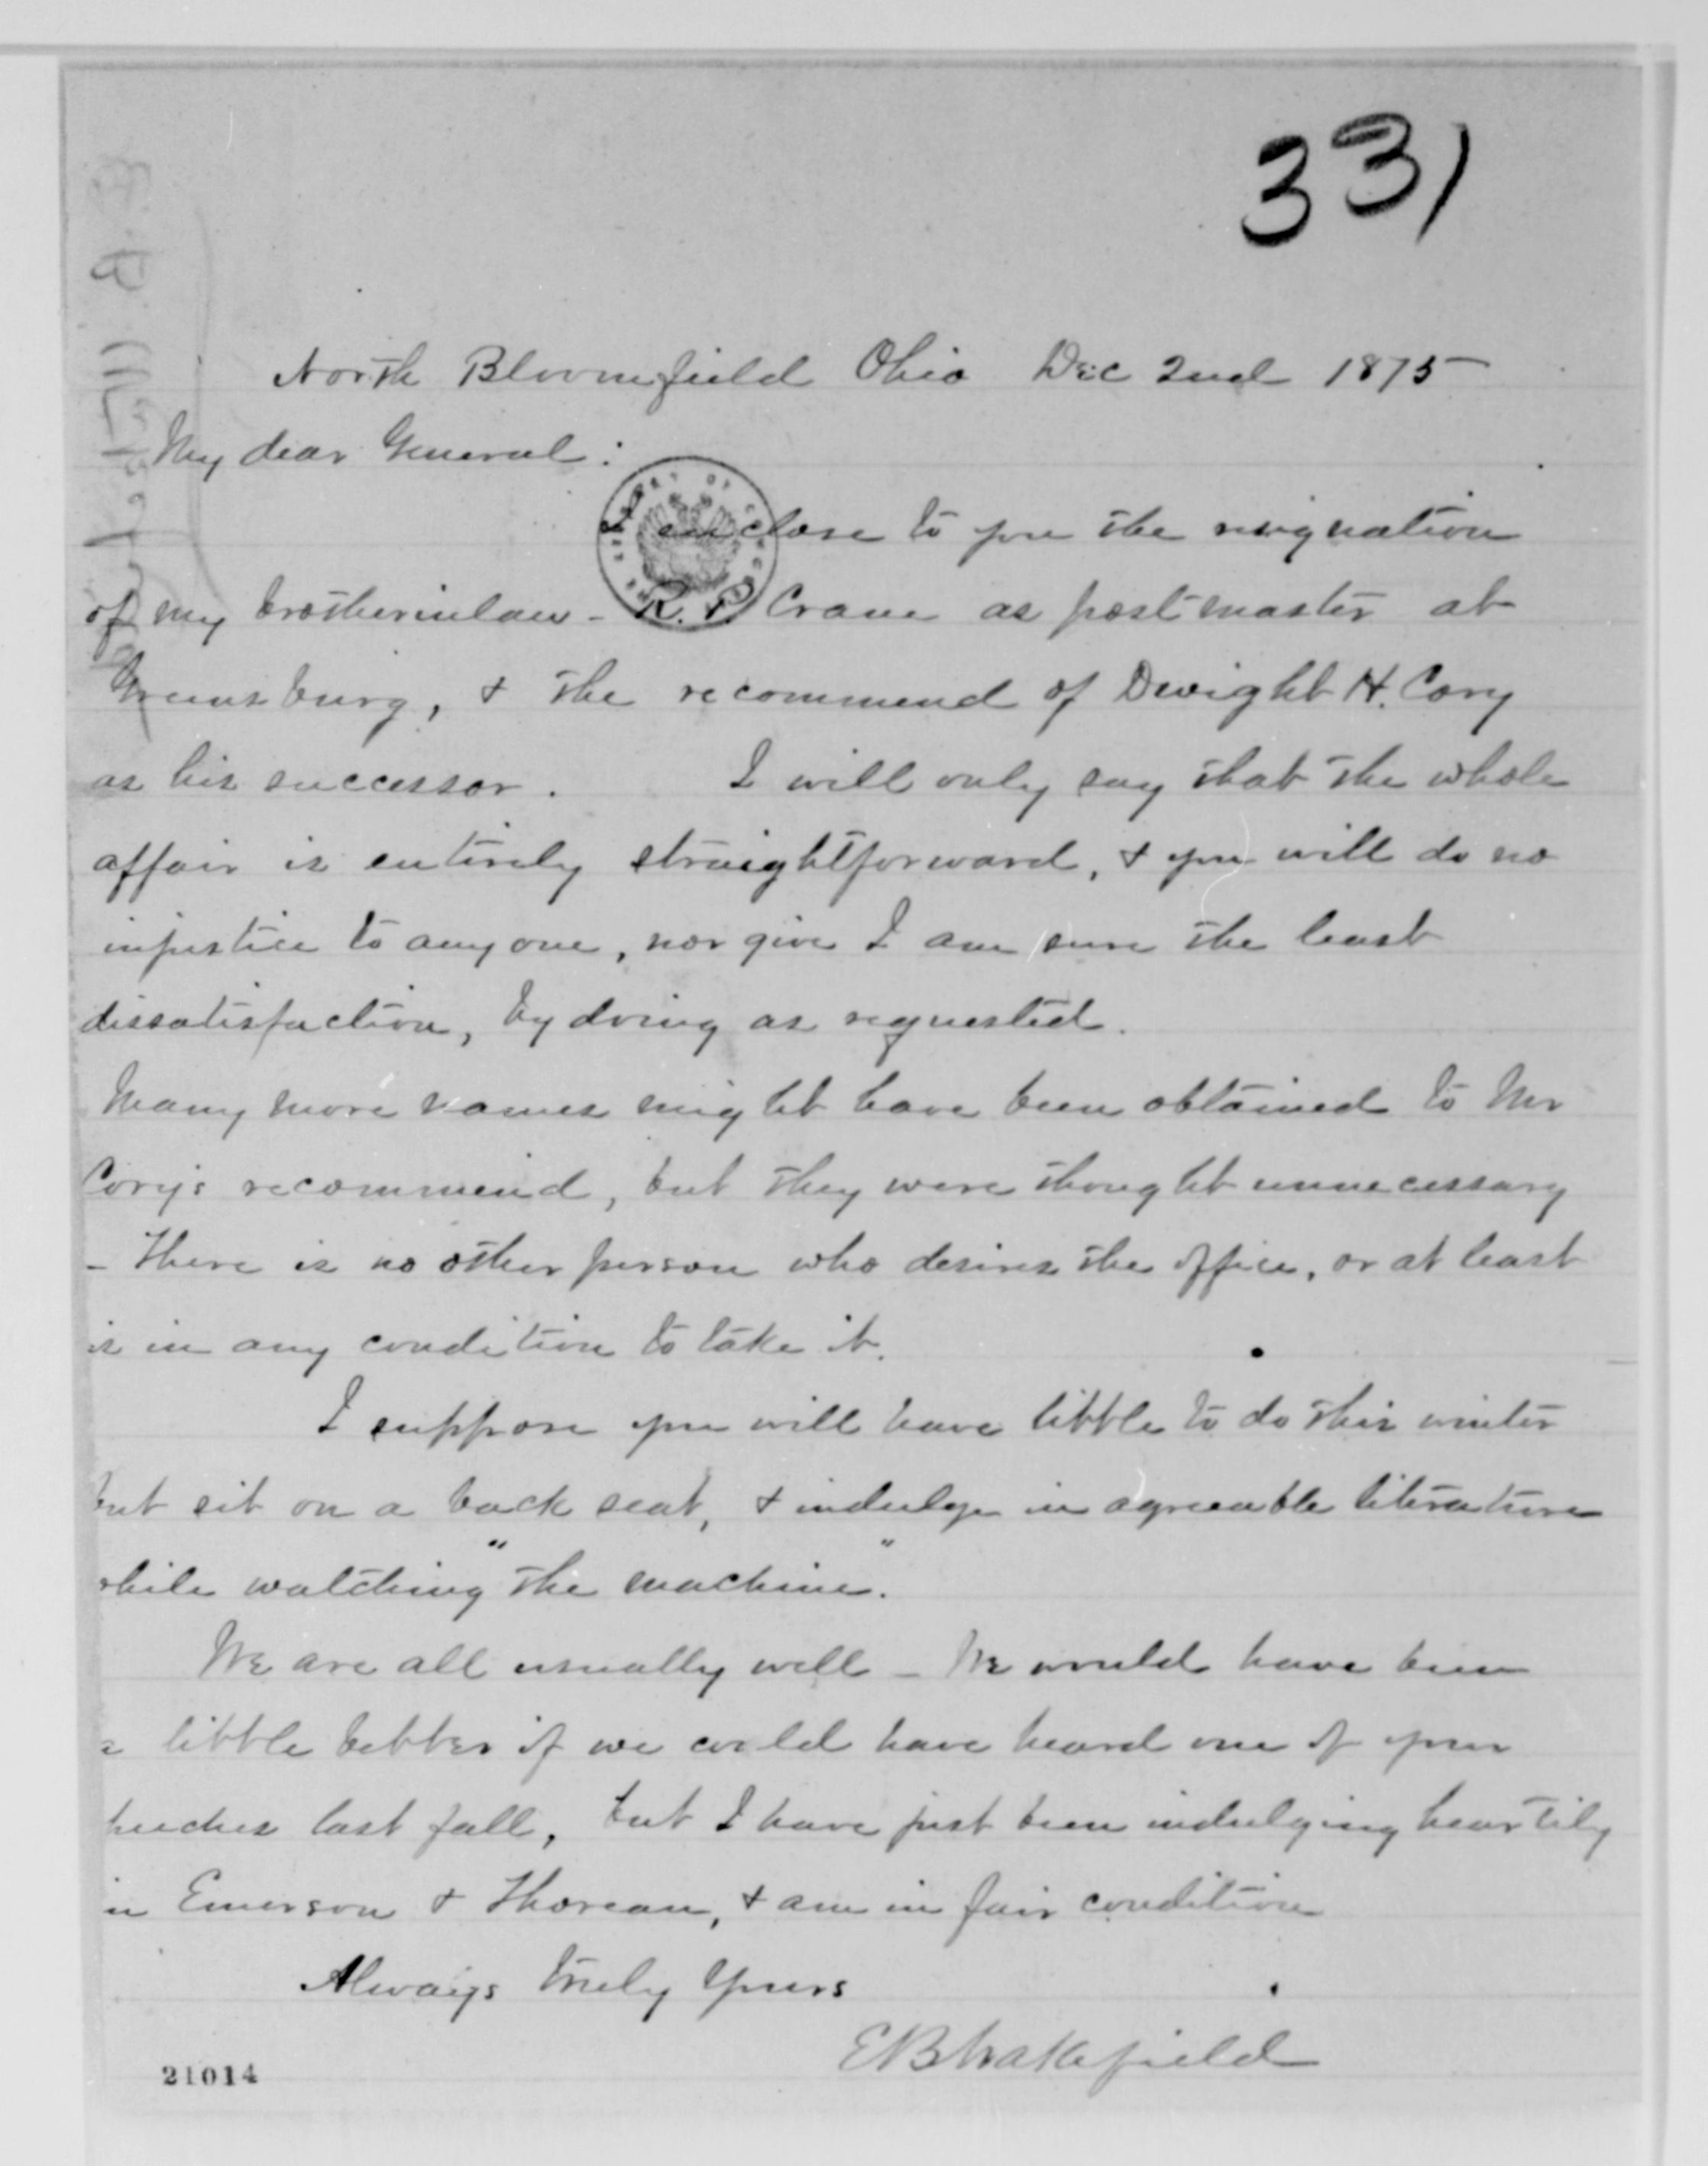 331
North Bloomfield Ohio Dec 2nd 1875
My dear General:
I enclose to you the resignation
of my brotherinlaw - R. P. Crane as postmaster at
Greensburg, & the recommend of Dwight H. Cory
as his successor. I will only say that the whole
affair is entirely straightforward, & you will do no
injustice to anyone, nor give I am sure the least
dissatisfaction, by doing as requested.
Many more names might have been obtained to Mr
Cory's recommend, but they were thought unnecessary
- There is no other person who desires the office, or at least
is in any condition to take it.
I suppose you will have little to do this winter
but sit on a back seat, & indulge in agreeable literature
while watching "the machine".
We are all usually well - We would have been
a little better if we could have heard one of your
speeches last fall, but I have just been indulging heartily
in Emerson & Thoreau, & am in fair condition
Always truly Yours
E B Wakefield
21014